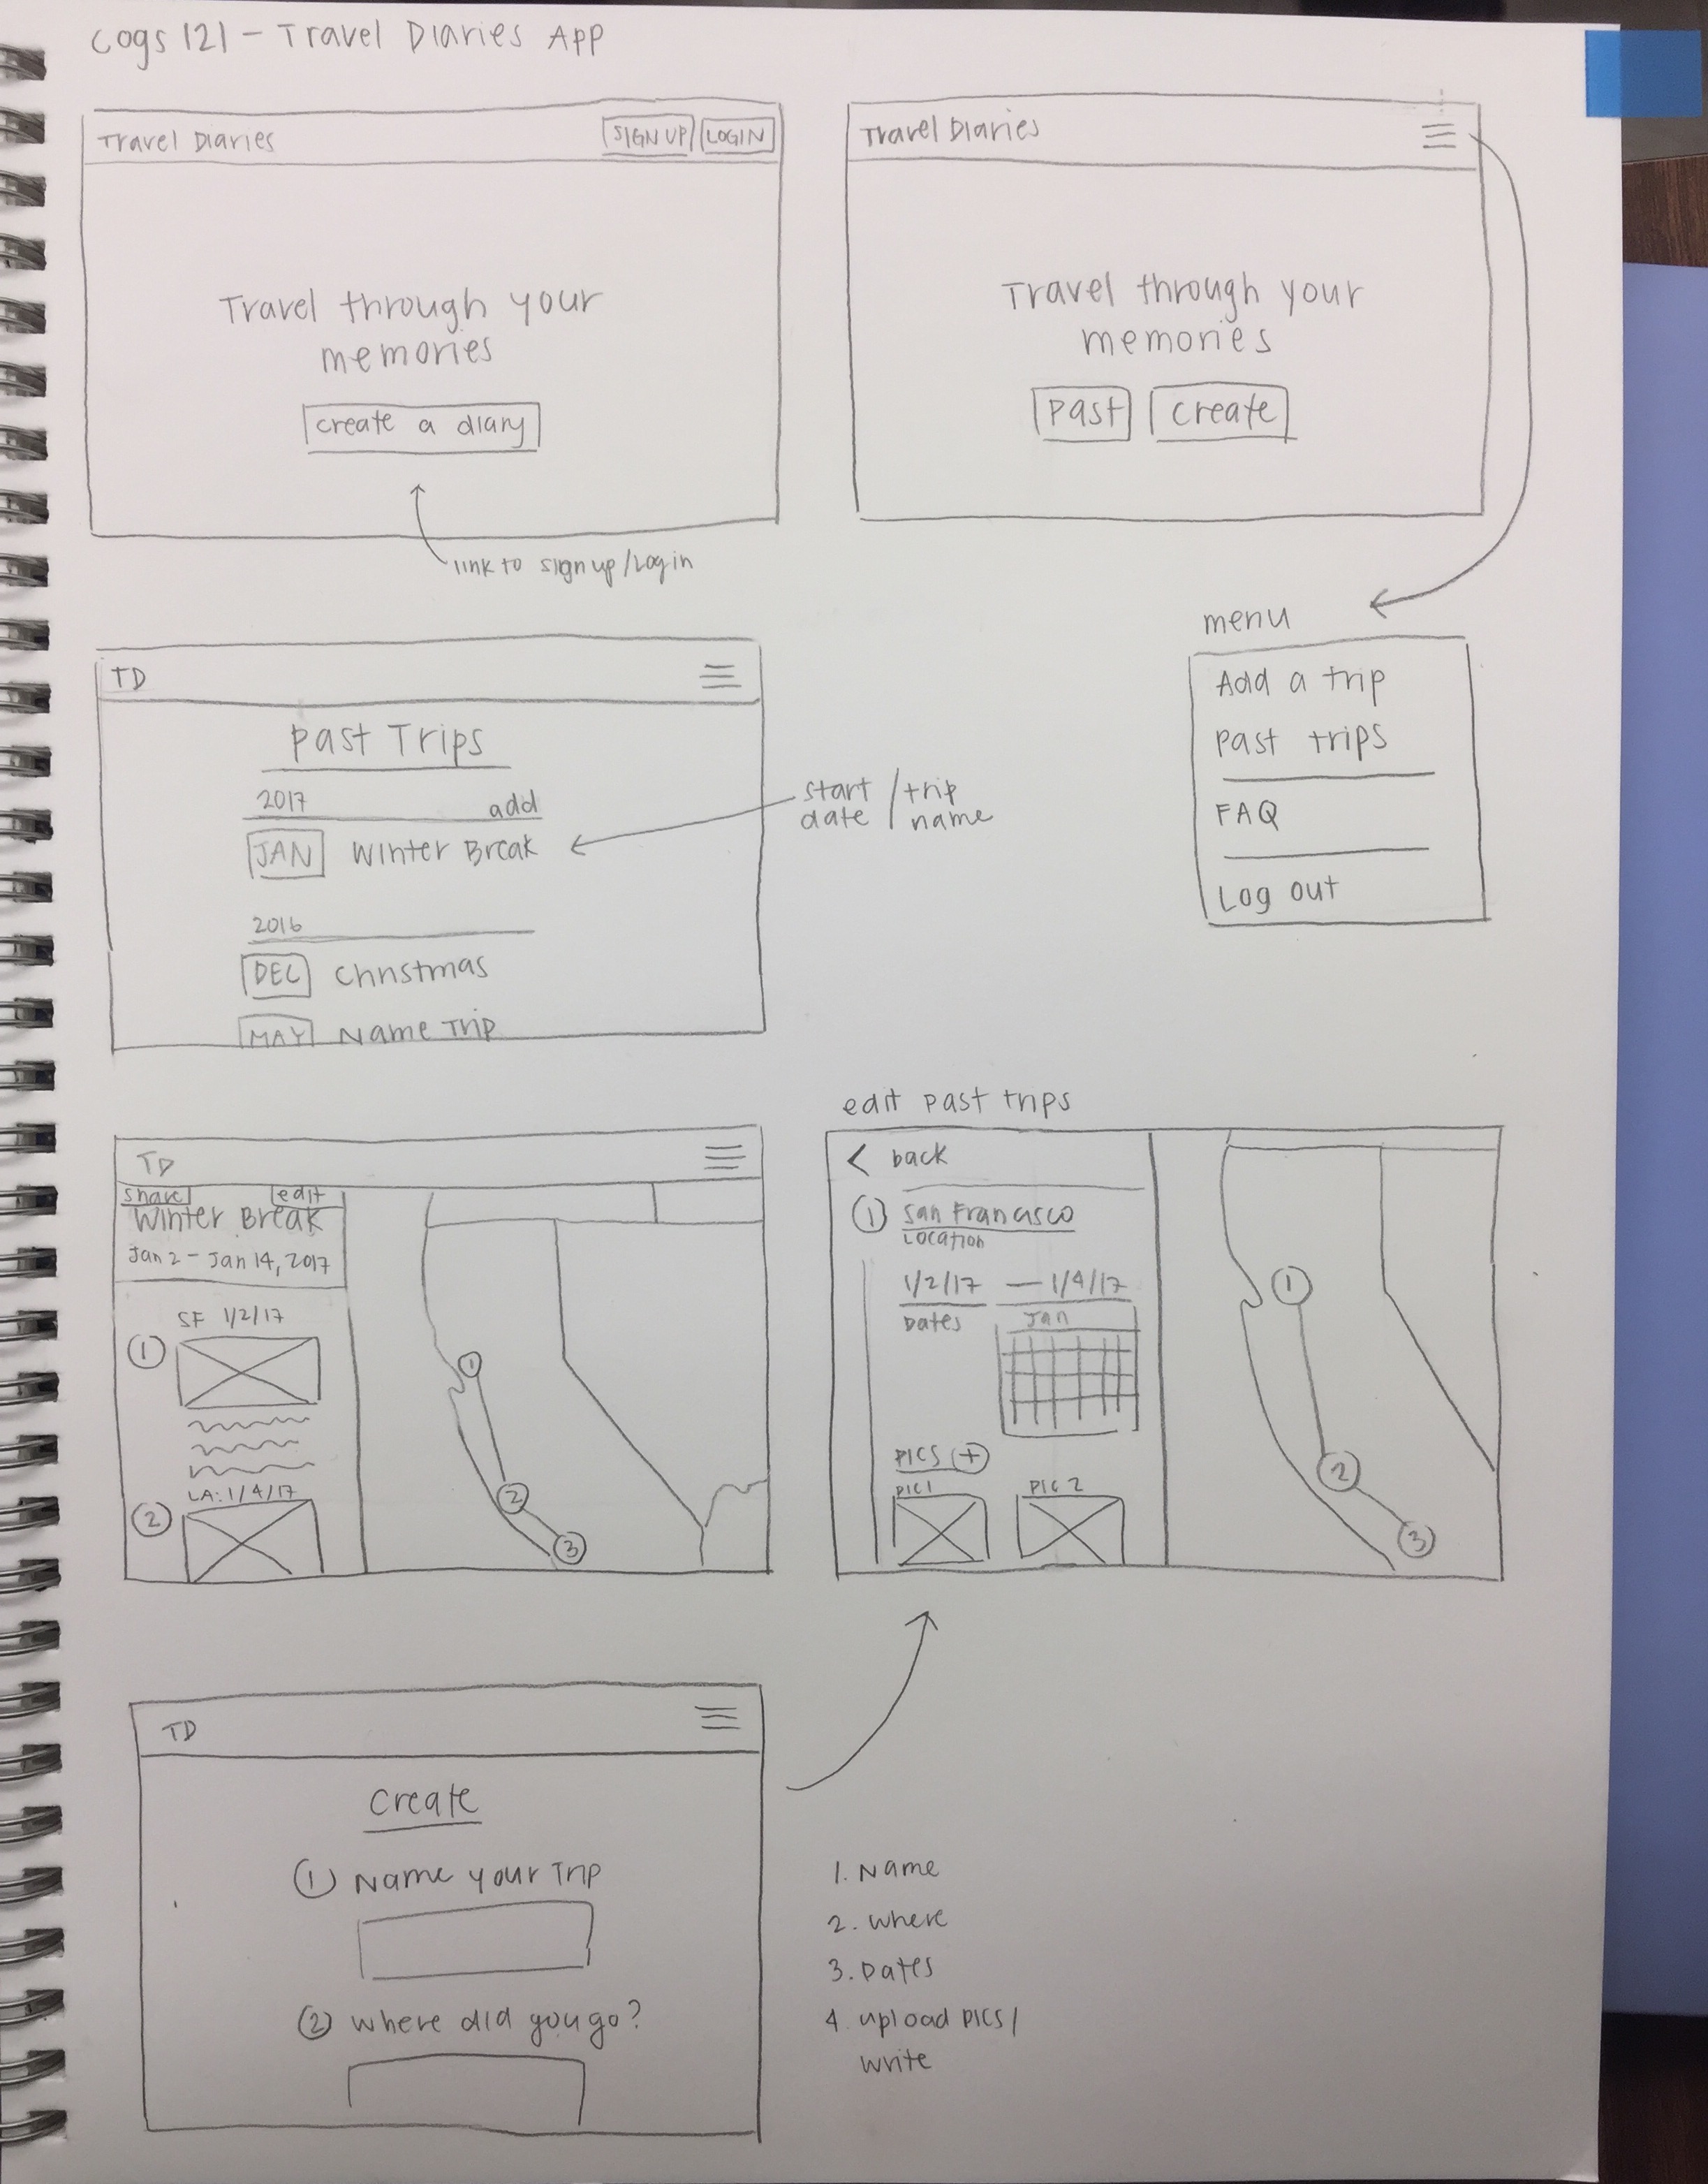 Cogs 121 - Travel Diaries App
Travel Diaries
SIGN UP
LOGIN
Travel through your
memories
create a diary
link to sign up/Login
Travel Diaries
Travel through your
memories
Past
Create
menu
Add a trip
Past trips
FAQ
Log out
TD
Past Trips
2017
add
JAN
Winter Break
2016
DEC
Christmas
MAY
Name Trip
start / trip
date / name
TD
share
edit
Winter Break
Jan 2 - Jan 14, 2017
SF 1/2/17
1
LA: 1/4/17
2
1
2
3
edit past trips
< back
1 San Francisco
Location
1/2/17 — 1/4/17
Dates
Jan
PICS +
PIC 1
PIC 2
1
2
3
TD
Create
1 Name your Trip
2 Where did you go?
1. Name
2. Where
3. Dates
4. upload pics/
write